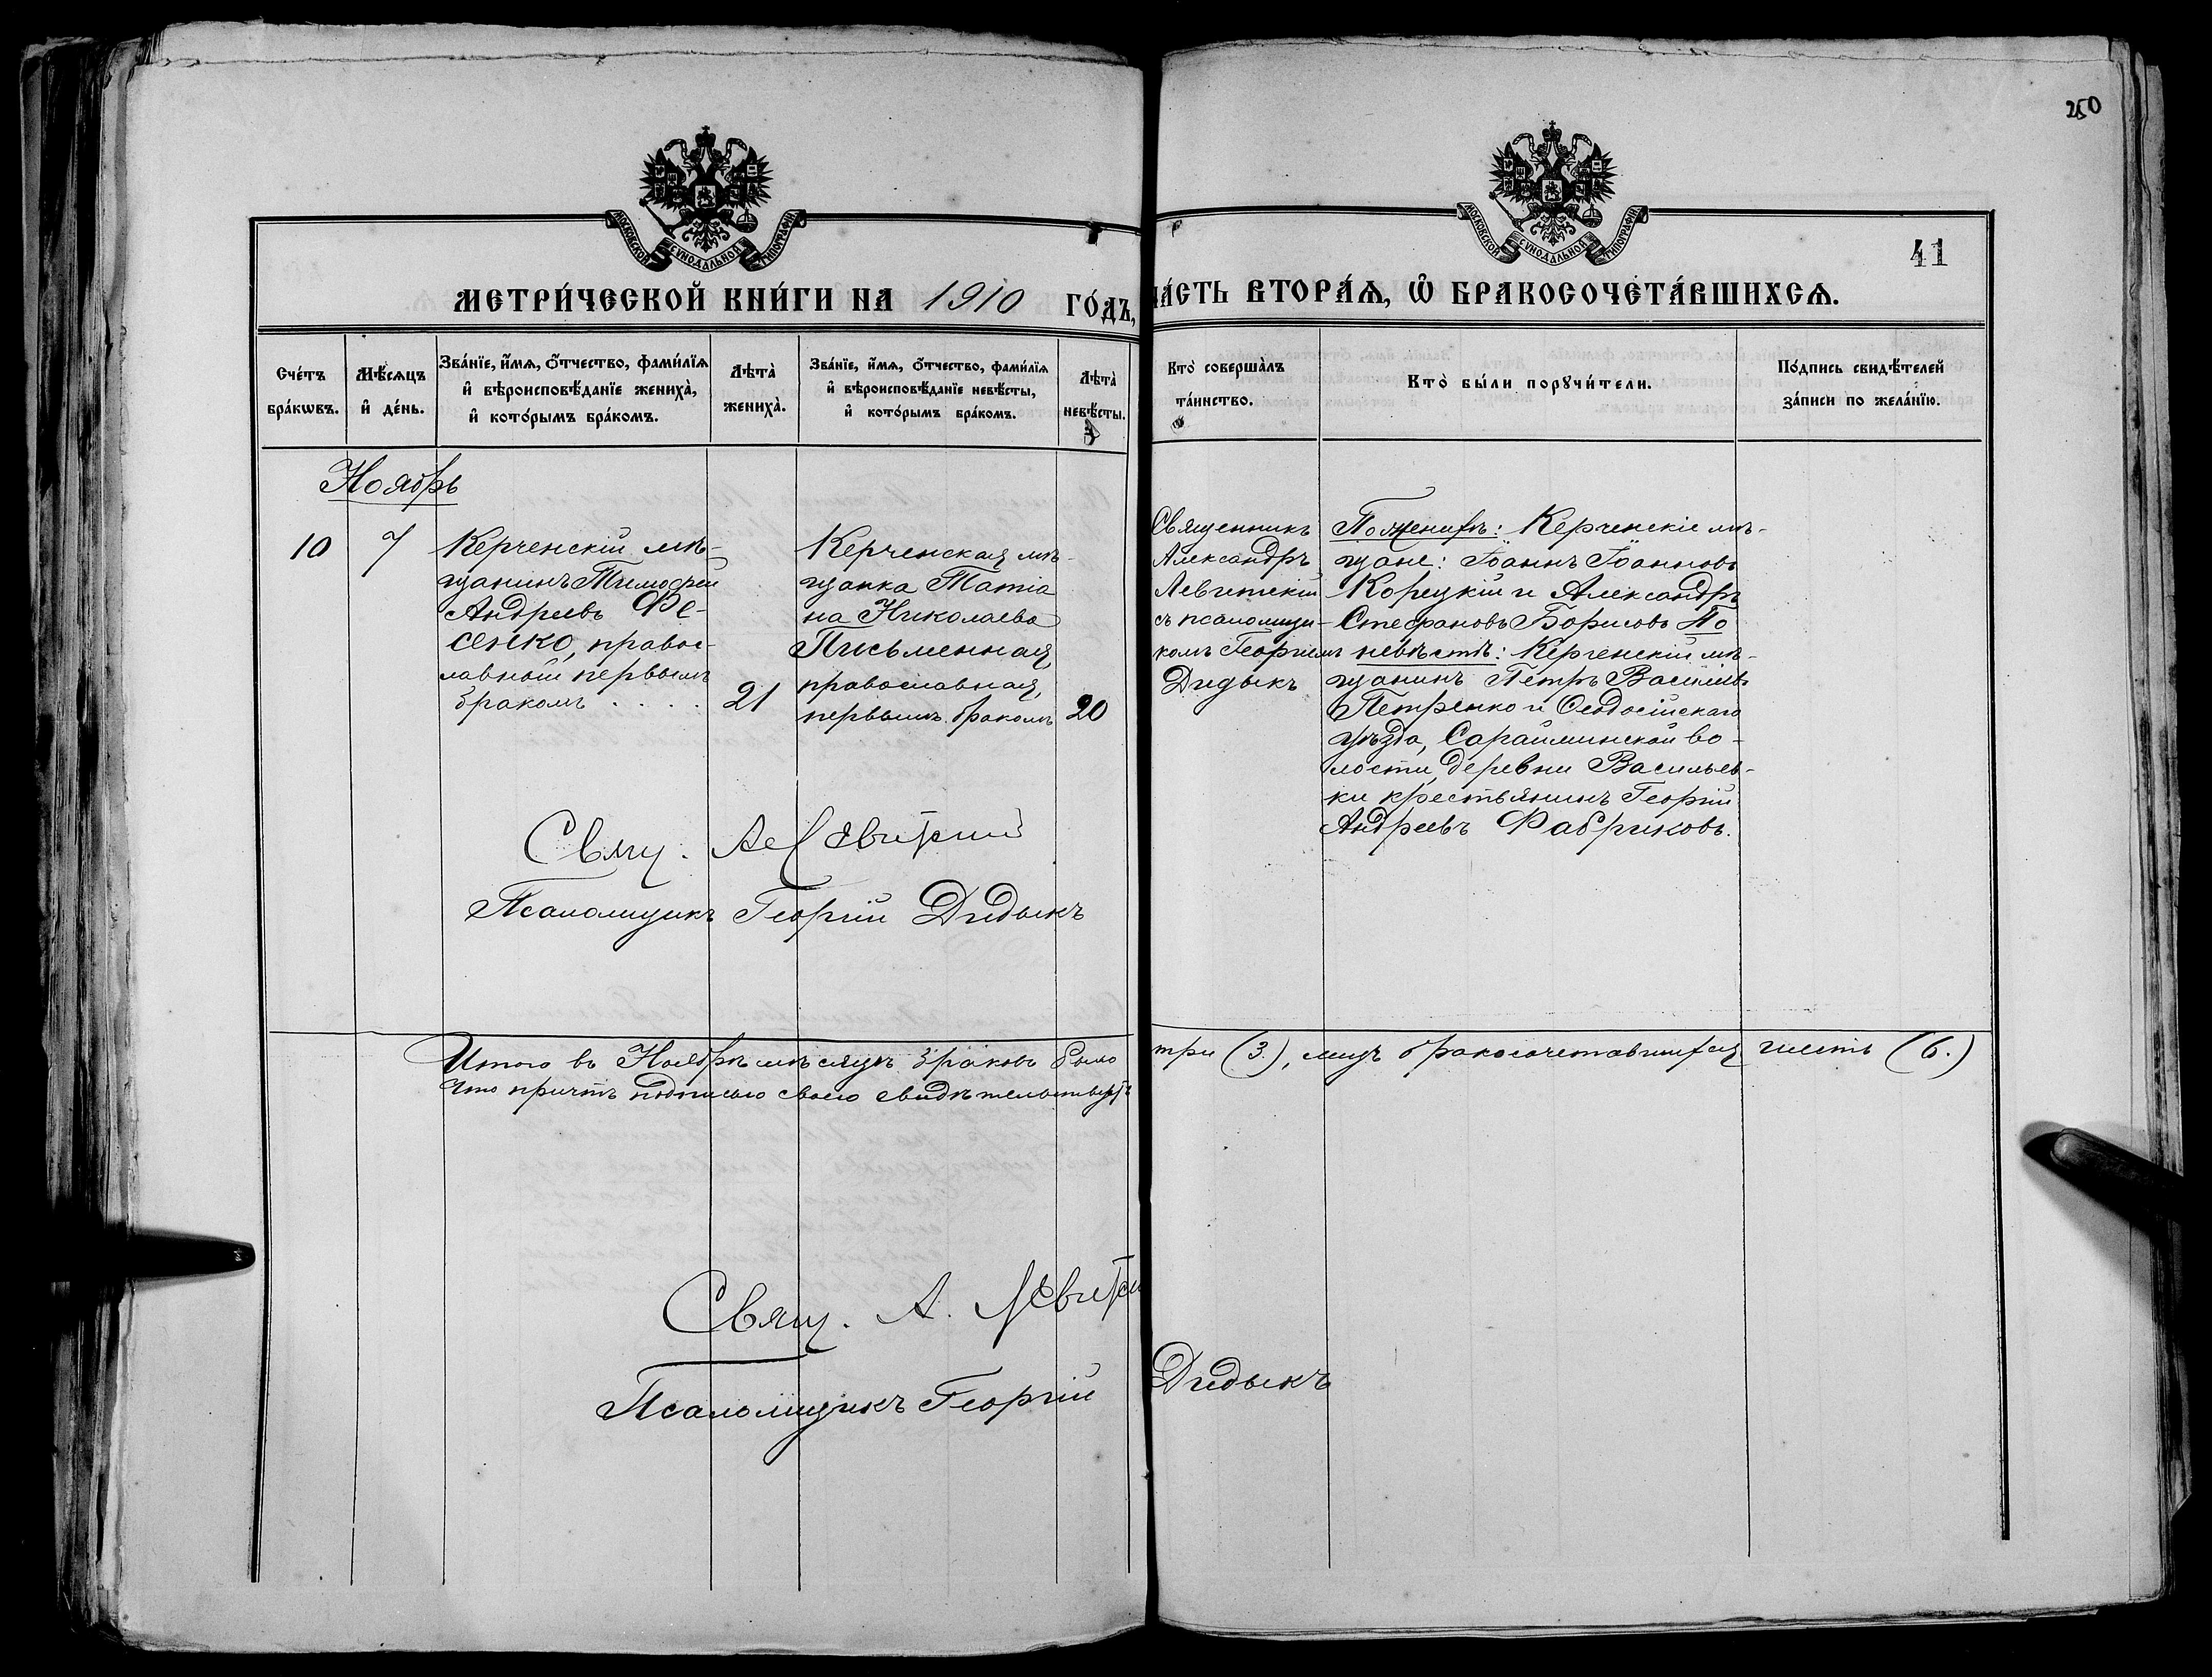 250
МОСКОВСКОЙ СУНОДАЛЬНОЙ ТИПОГРАФІИ
МОСКОВСКОЙ СУНОДАЛЬНОЙ ТИПОГРАФІИ
41
МЕТРИ́ЧЕСКОЙ КНИ́ГИ НА 1910 ГО́ДЪ, ЧА́СТЬ ВТОРА́Ѧ, Ѡ҆ БРАКОСОЧЕТА́ВШИХСѦ.
Сче́тъ
бра́кѡвъ.
Мѣ́сѧцъ
и҆ де́нь.
Зва́нїе, и҆́мѧ, ѻ҆́тчество, фами́лїѧ
и҆ вѣроисповѣ́данїе жениха̀,
и҆ кото́рымъ бра́комъ.
Лѣта̀
жениха̀.
Зва́нїе, и҆́мѧ, ѻ҆́тчество, фами́лїѧ
и҆ вѣроисповѣ́данїе невѣ́сты,
и҆ кото́рымъ бра́комъ.
Лѣта̀
невѣ́сты.
Кто̀ соверша̀лъ
та́инство.
Кто̀ бы́ли порꙋчи́тели.
По́дпись свидѣ́телей
за́писи по жела́нїю.
Ноябрь
10
7
Керченскій мѣ-
щанинъ Тимофей
Андреевъ Фе-
сенко, правос-
лавный первымъ
бракомъ . . . .
21
Керченская мѣ-
щанка Татіа
на Николаева
Письменная,
православная,
первымъ бракомъ
20
Священникъ
Александръ
Левитскій
съ псаломщи-
комъ Георгіемъ
Дидыкъ
По женихѣ: Керченскіе мѣ-
щане: Іоаннъ Іоанновъ
Корецкій и Александръ
Стефановъ Борисовъ По
невѣстѣ: Керченскій мѣ-
щанинъ Петръ Васильевъ
Петренко и Ѳеодосійскаго
уѣзда, Сарайминской во-
лости, деревни Васильев-
ки крестьянинъ Георгій
Андреевъ Фабриковъ.
Свящ. Ал Левитскій
Псаломщикъ Георгій Дидыкъ
Итого въ Ноябрѣ мѣсяцѣ браковъ было три (3.), лицъ бракосочетавшихся шесть (6.)
Что причтъ подписью своею свидѣтельствуетъ
Свящ. А. Левитск
Псаломщикъ Георгій Дидыкъ